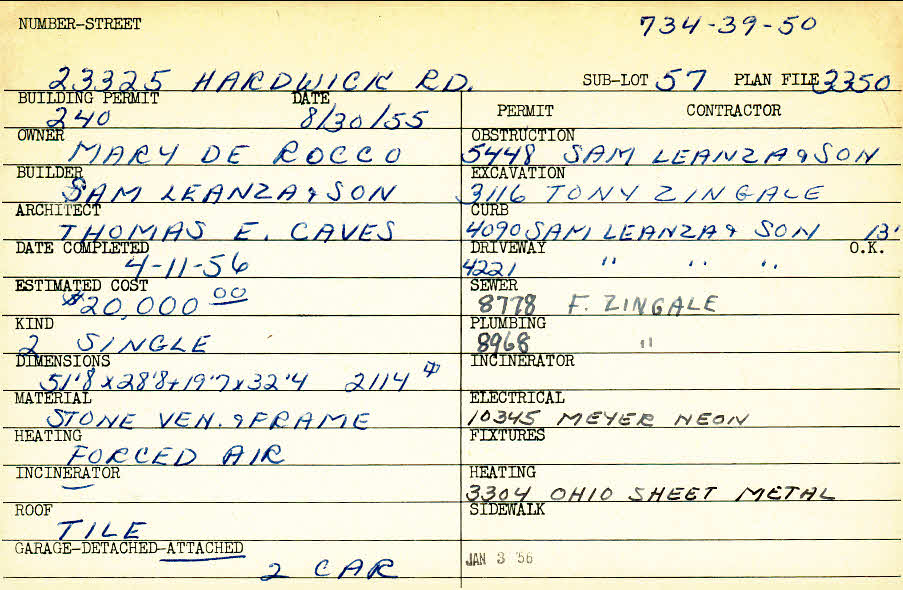 NUMBER-STREET 734-39-50
23325 HARDWICK RD. SUB-LOT 57 PLAN FILE 3350
BUILDING PERMIT DATE
240 8/30/55
OWNER
MARY DE ROCCO
BUILDER
SAM LEANZA & SON
ARCHITECT
THOMAS E. CAVES
DATE COMPLETED
4-11-56
ESTIMATED COST
$20,000 00
KIND
2 SINGLE
DIMENSIONS
51'8 x 28'8 + 19'7 x 32'4 2114
MATERIAL
STONE VEN. & FRAME
HEATING
FORCED AIR
INCINERATOR
ROOF
TILE
GARAGE-DETACHED-ATTACHED
2 CAR
PERMIT CONTRACTOR
OBSTRUCTION
5448 SAM LEANZA & SON
EXCAVATION
3116 TONY ZINGALE
CURB
4090 SAM LEANZA & SON 13'
DRIVEWAY O.K.
4221 " " "
SEWER
8778 F. ZINGALE
PLUMBING
8968 "
INCINERATOR
ELECTRICAL
10345 MEYER NEON
FIXTURES
HEATING
3304 OHIO SHEET METAL
SIDEWALK
JAN 3 '56